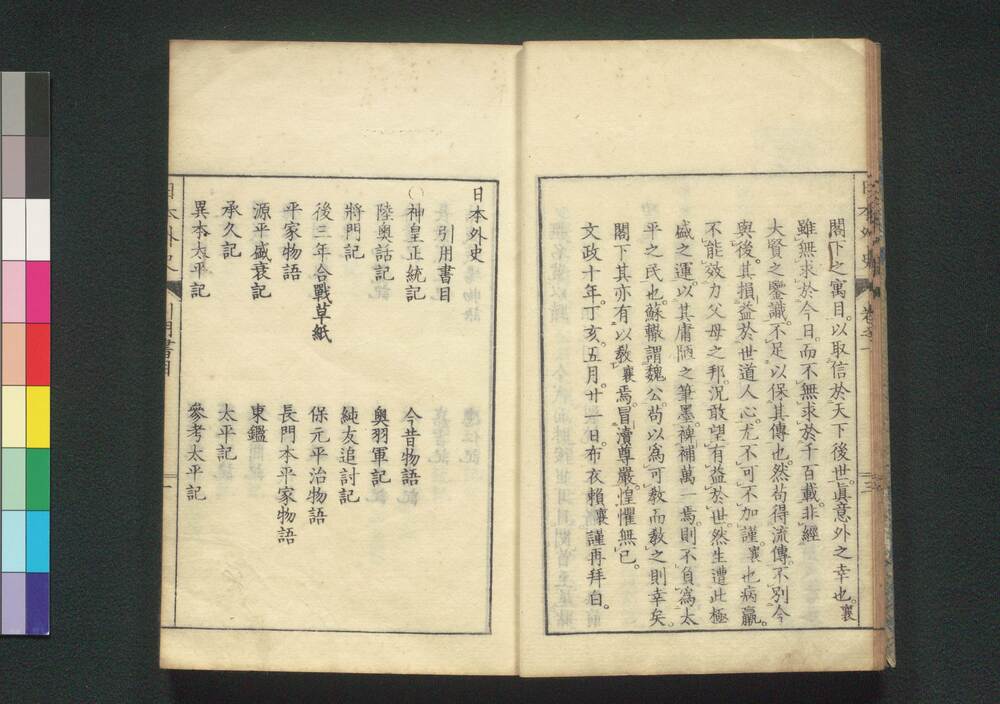 閣下之寓目。以取信於天下後世。眞意外之幸也。襄
雖無求於今日。而不無求於千百載。非經
大賢之鑒識。不足以保其傳也。然苟得流傳。不別今
與後。其損益於世道人心。尤不可不加謹。襄也病羸。
不能效力父母之邦。況敢望有益於世。然生遭此極
盛之運。以其庸陋之筆墨。裨補萬一焉。則不負爲太
平之民也。蘇轍謂魏公。苟以爲可教而教之則幸矣。
閣下其亦有以教襄焉。冒瀆尊嚴。惶懼無已。
文政十年。丁亥。五月。廿一日。布衣賴襄謹再拜白。
日本外史
引用書目
神皇正統記 今昔物語
陸奧話記 奧羽軍記
將門記 純友追討記
後三年合戰草紙 保元平治物語
平家物語 長門本平家物語
源平盛衰記 東鑑
承久記 太平記
異本太平記 參考太平記
日本外史 引用書目 一